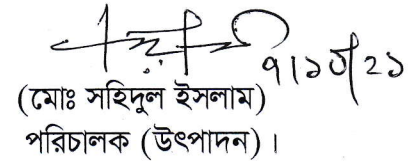 ৭।১০।২১
(মোঃ সহিদুল ইসলাম)
পরিচালক (উৎপাদন)।